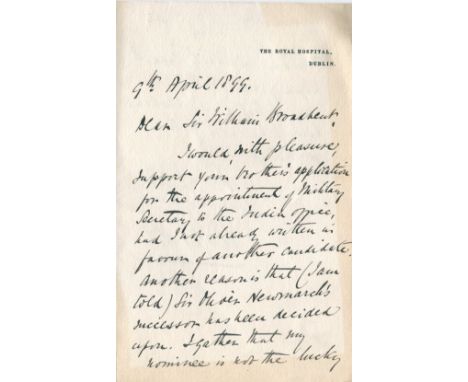 THE ROYAL HOSPITAL,
DUBLIN.
9th April 1899.
Dear Sir William Broadbent
I would, with pleasure,
support your brother's application
for the appointment of Military
Secretary to the India Office,
had I not already written in
favour of another candidate.
Another reason is that (I am
told) Sir Oliver Newmarch's
successor has been decided
upon. I gather that my
nominee is not the lucky